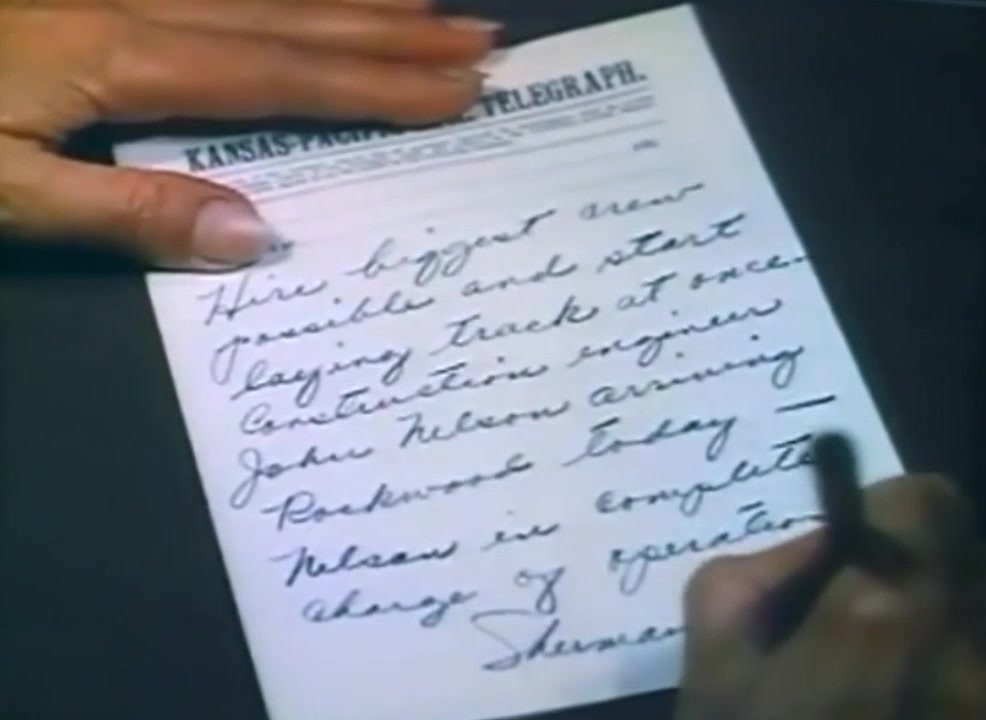 KANSAS-PACIFIC TELEGRAPH.
Hire biggest crew
possible and start
laying track at once.
Construction engineer
John Nelson arriving
Rockwood today —
Nelson in complete
charge of operation
Sherman